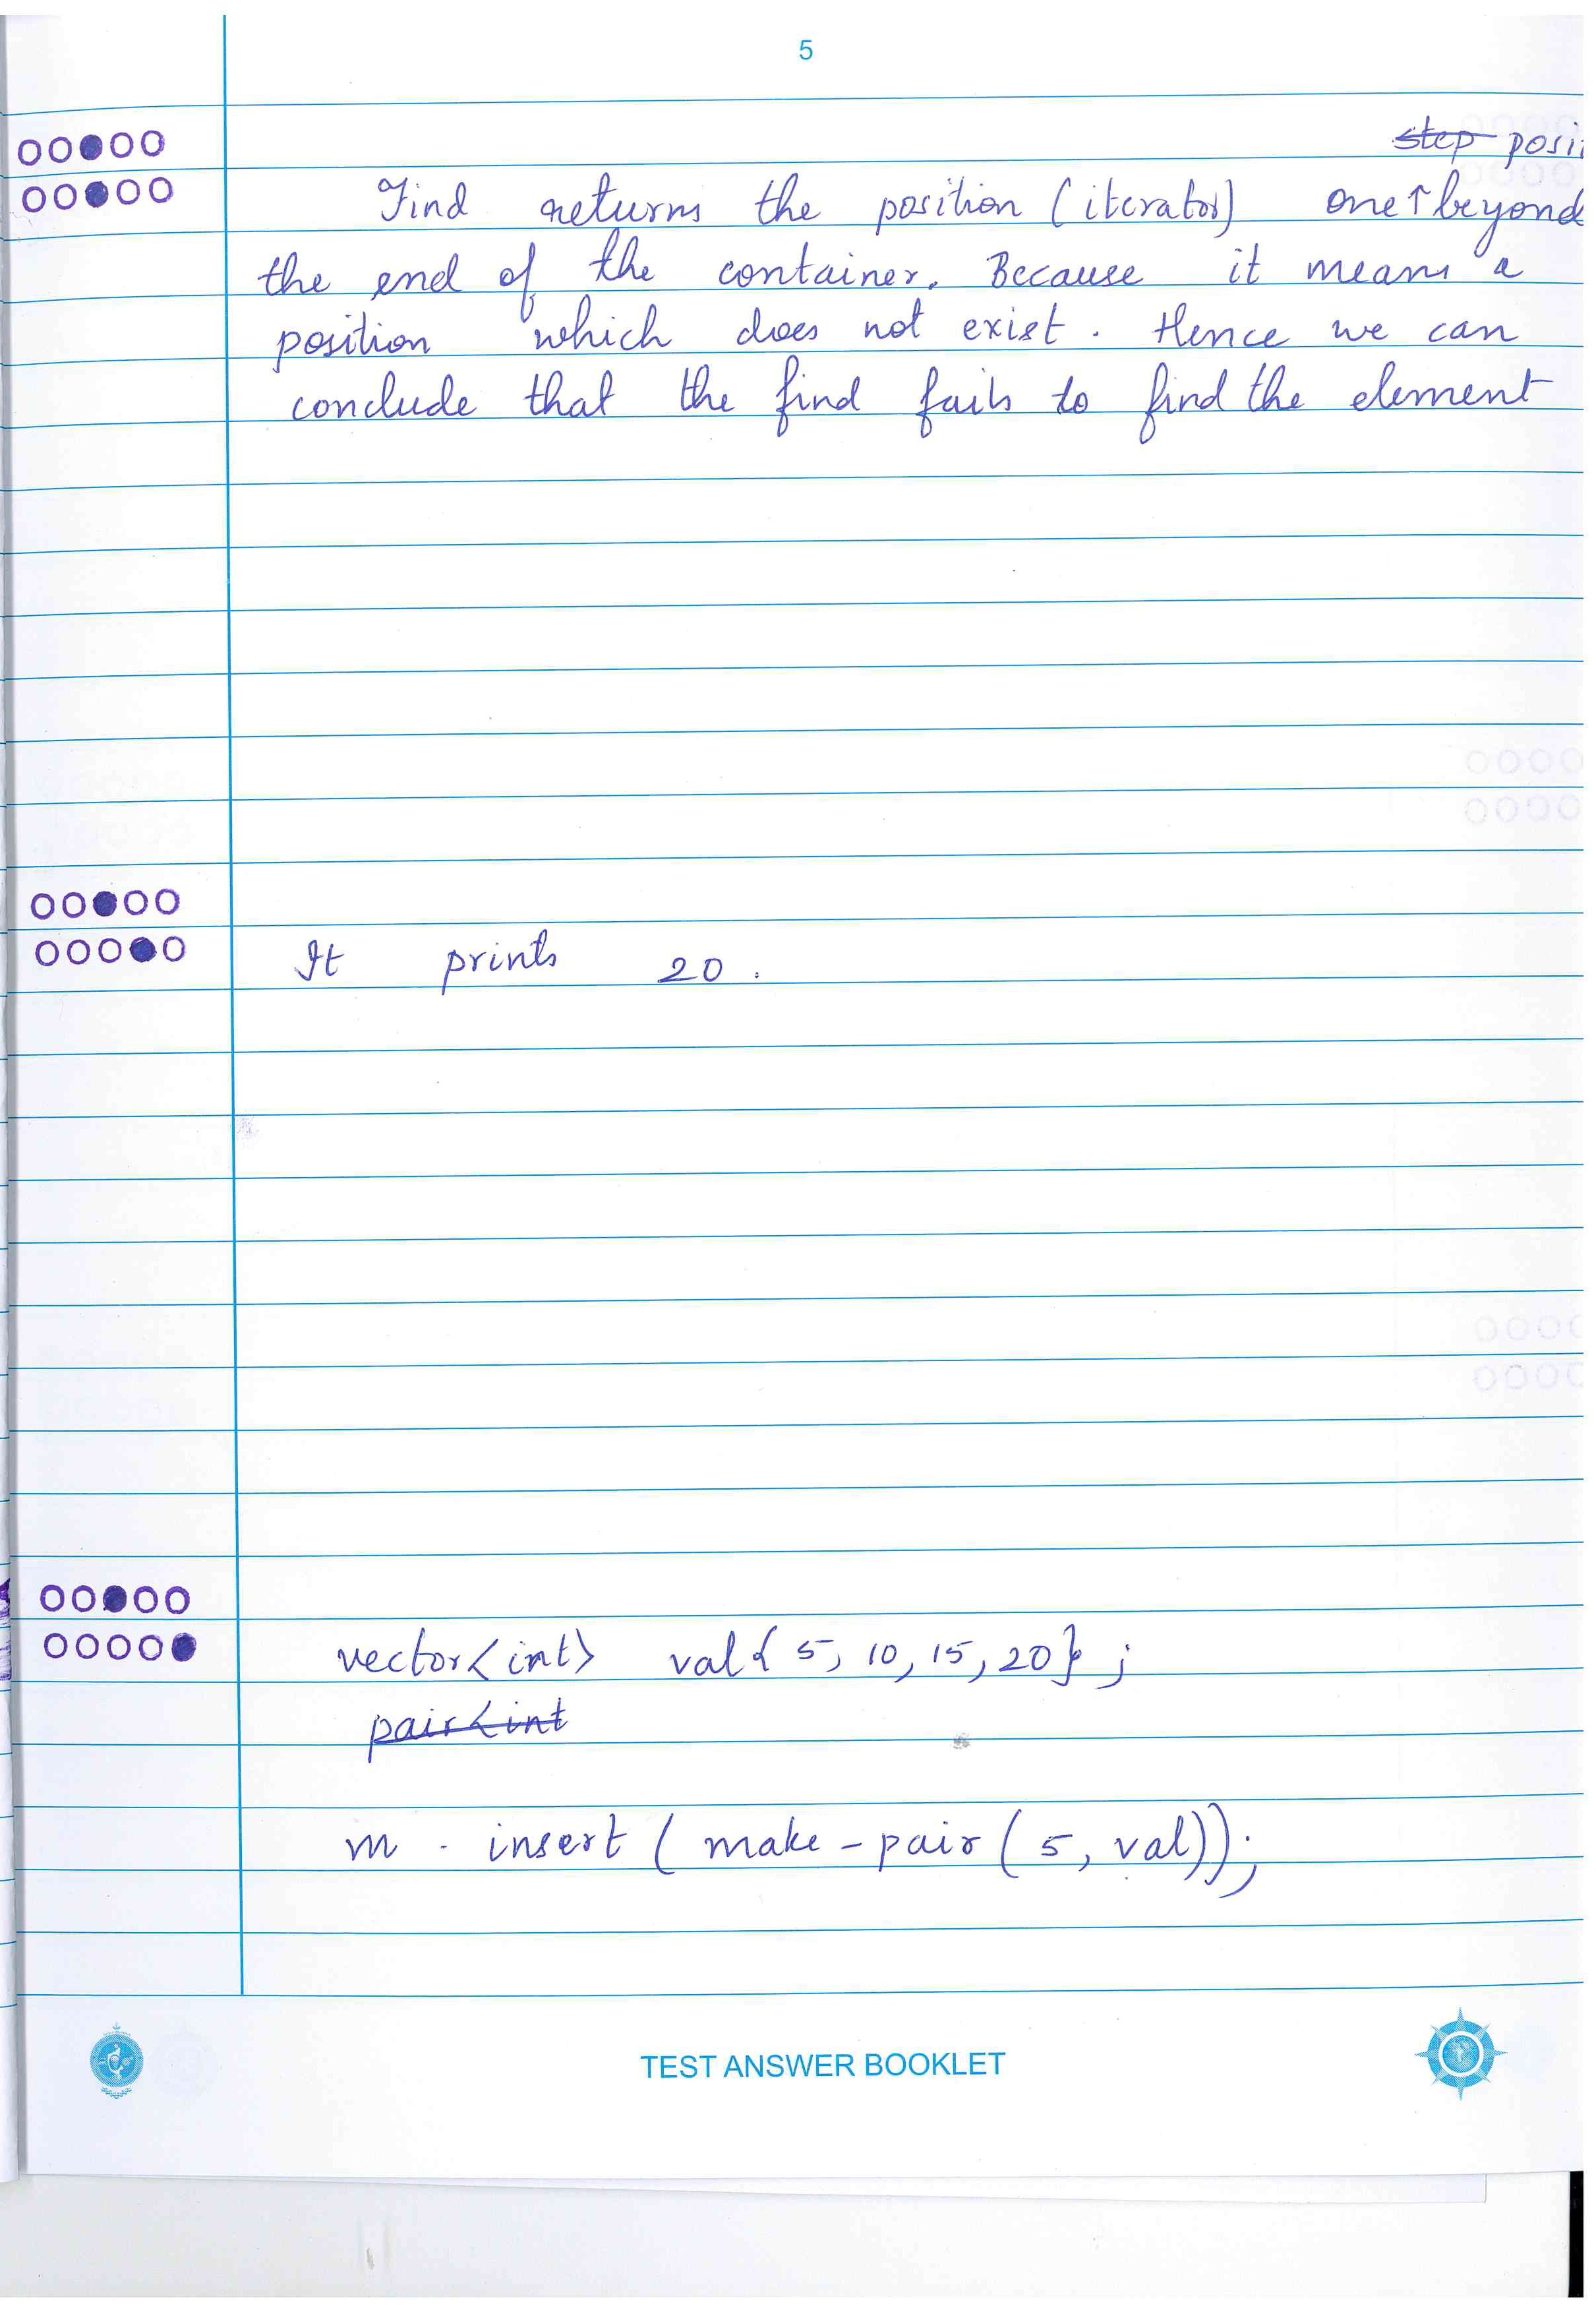 5
step posi
Find returns the position (iterator) one↑beyond
the end of the container. Because it means a
position which does not exist. Hence we can
conclude that the find fails to find the element
It prints 20.
vector<int> val{ 5, 10, 15, 20} ;
pair<int
m . insert ( make-pair ( 5, val));
TEST ANSWER BOOKLET